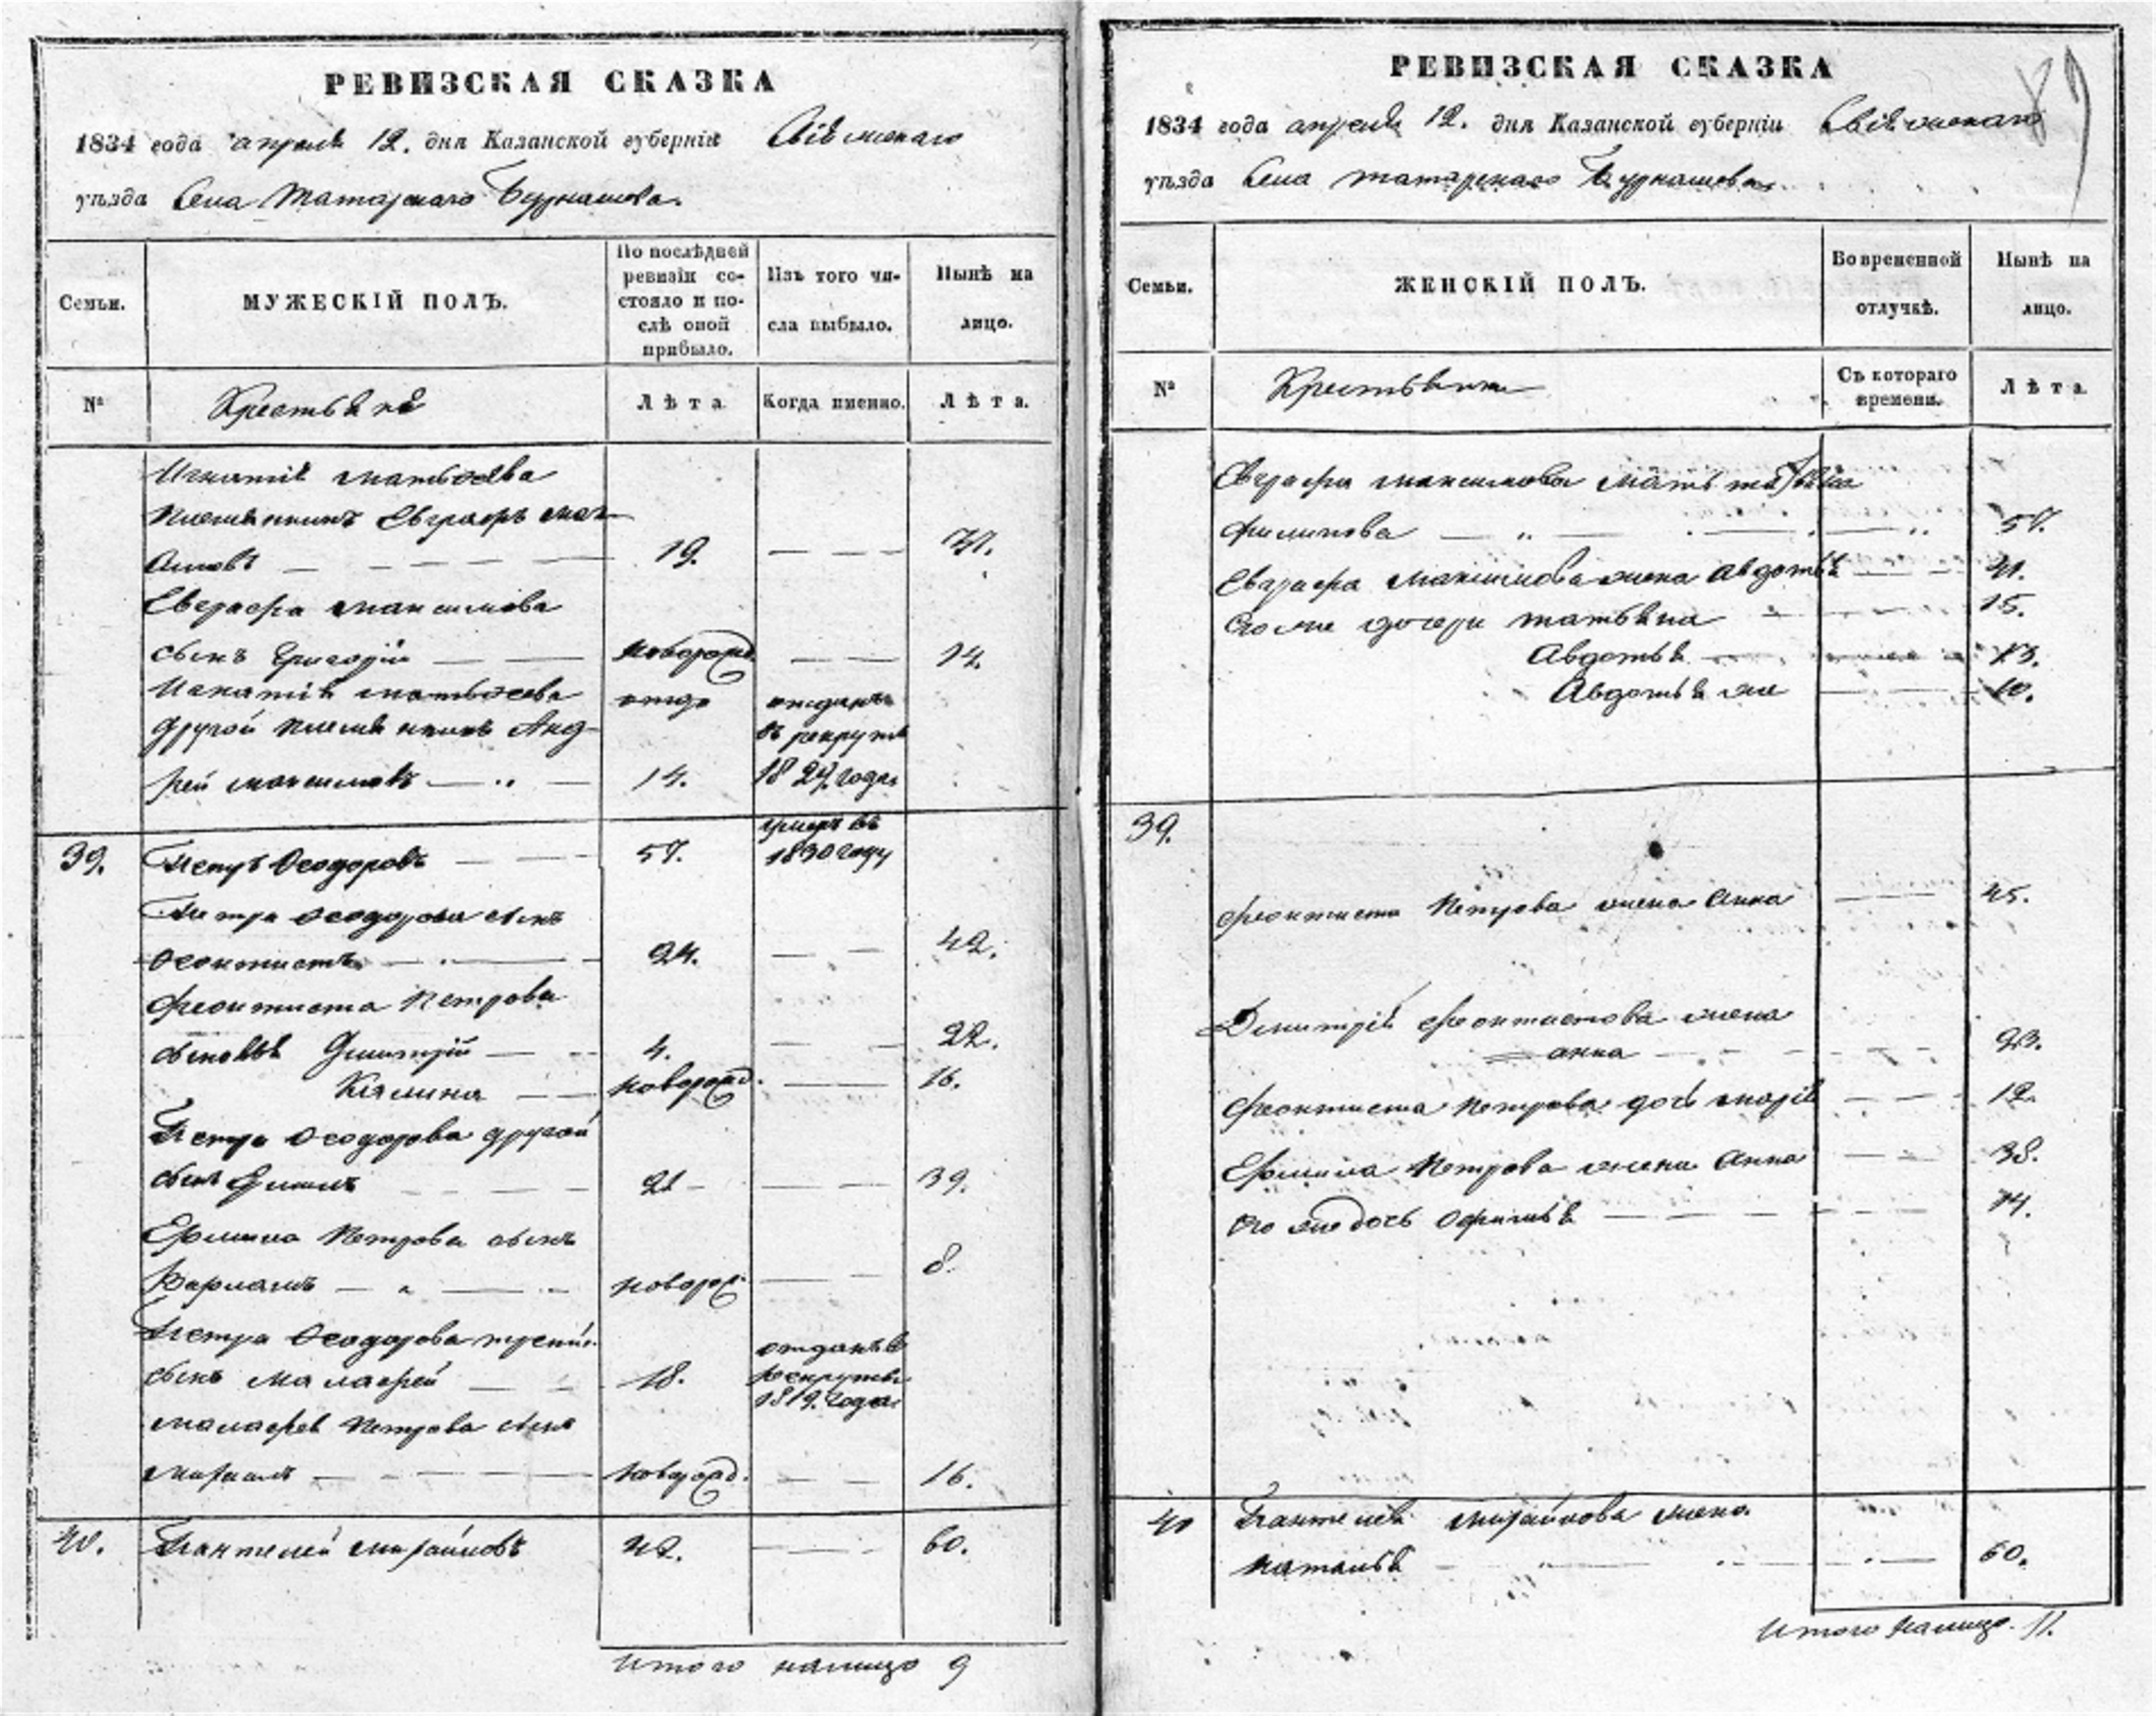 РЕВИЗСКАЯ СКАЗКА
1834 года апреля 12. дня Казанской губернiи Свiяжскаго
уѣзда Села Татарскаго Бурнашева.
Семьи.
МУЖЕСКIЙ ПОЛЪ.
По послѣдней ревизiи со-
стояло и по-
слѣ оной
прибыло.
Изъ того чи-
сла выбыло.
Нынѣ на
лицо.
№
Крестьяне
Лѣта
Когда именно.
Лѣта.
Игнатiя Матвѣева
племянникъ Евграфъ Мак-
симовъ 19.
Евграфа Максимова
сынъ Григорiй новорожд. 14.
Игнатiя Матвѣева
другой племянникъ Анд-
рей Максимовъ 14.
отданъ
въ рекруты
1827 года
39. Петръ Ѳеодоровъ 57. умеръ въ
1830 году
Петра Ѳеодорова сынъ
Ѳеоктистъ 24. 42.
Феоктиста Петрова
сыновья Дмитрiй 4. 22.
новорожд. 16.
Петра Ѳеодорова другой
сынъ 21 39.
Ермила Петрова сынъ
Варламъ новорж. 8.
Петра Ѳеодорова третiй
сынъ Малафей 18. отданъ в
рекруты
1819. года
Малафея Петрова сынъ
новорожд. 16.
40. Пантелей Михайловъ 42. 60.
Итого налицо 9
РЕВИЗСКАЯ СКАЗКА
1834 года апреля 12. дня Казанской губернiи Свiяжскаго
уѣзда Села Татарскаго Бурнашева.
Семьи.
ЖЕНСКIЙ ПОЛЪ.
Во временной
отлучкѣ.
Нынѣ на
лицо.
№
Крестьянки
Съ котораго
времени.
Лѣта
Евграфа Максимова мать
Филипова 57.
Евграфа Максимова жена Авдотья 41.
Его же дочери Татьяна 15.
Авдотья 13.
Авдотья же 10.
39.
Феоктиста Петрова жена Анна 45.
Дмитрiя Феоктистова жена
Анна 23.
Феоктиста Петрова дочь Марiя 12.
Ермила Петрова жена Анна 38.
Его же дочь Офимья 14.
40 Пантелея Михайлова жена
Наталья 60.
Итого налицо. 11.